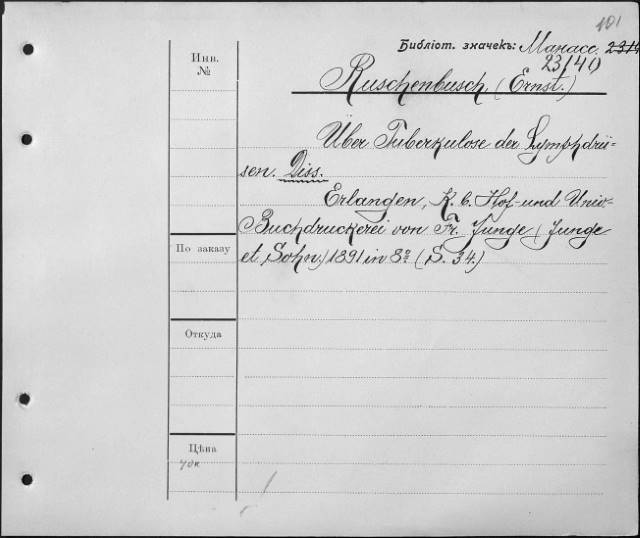 101
Библіот. значекъ: Манасс. 2314
23140
Инв.
№
Ruschenbusch (Ernst.)
Über Tuberkulose der Lymphdrü-
sen. Diss.
Erlangen, K. b. Hof- und Univ-
Buchdruckerei von Fr. Junge (Junge
et Sohn.) 1891 in 8º (S. 34.)
По заказу
Откуда
Цѣна
40к